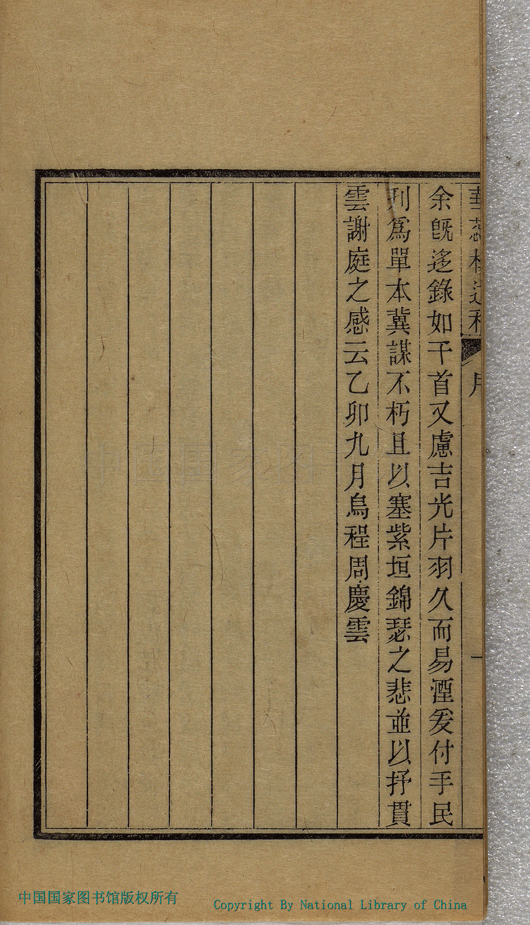 余旣迻錄如干首又慮吉光片羽久而易湮爰付手民
刋爲單本冀謀不朽且以塞紫垣錦瑟之悲並以抒貫
雲謝庭之感云乙卯九月烏程周慶雲
中国国家图书馆版权所有
Copyright By National Library of China